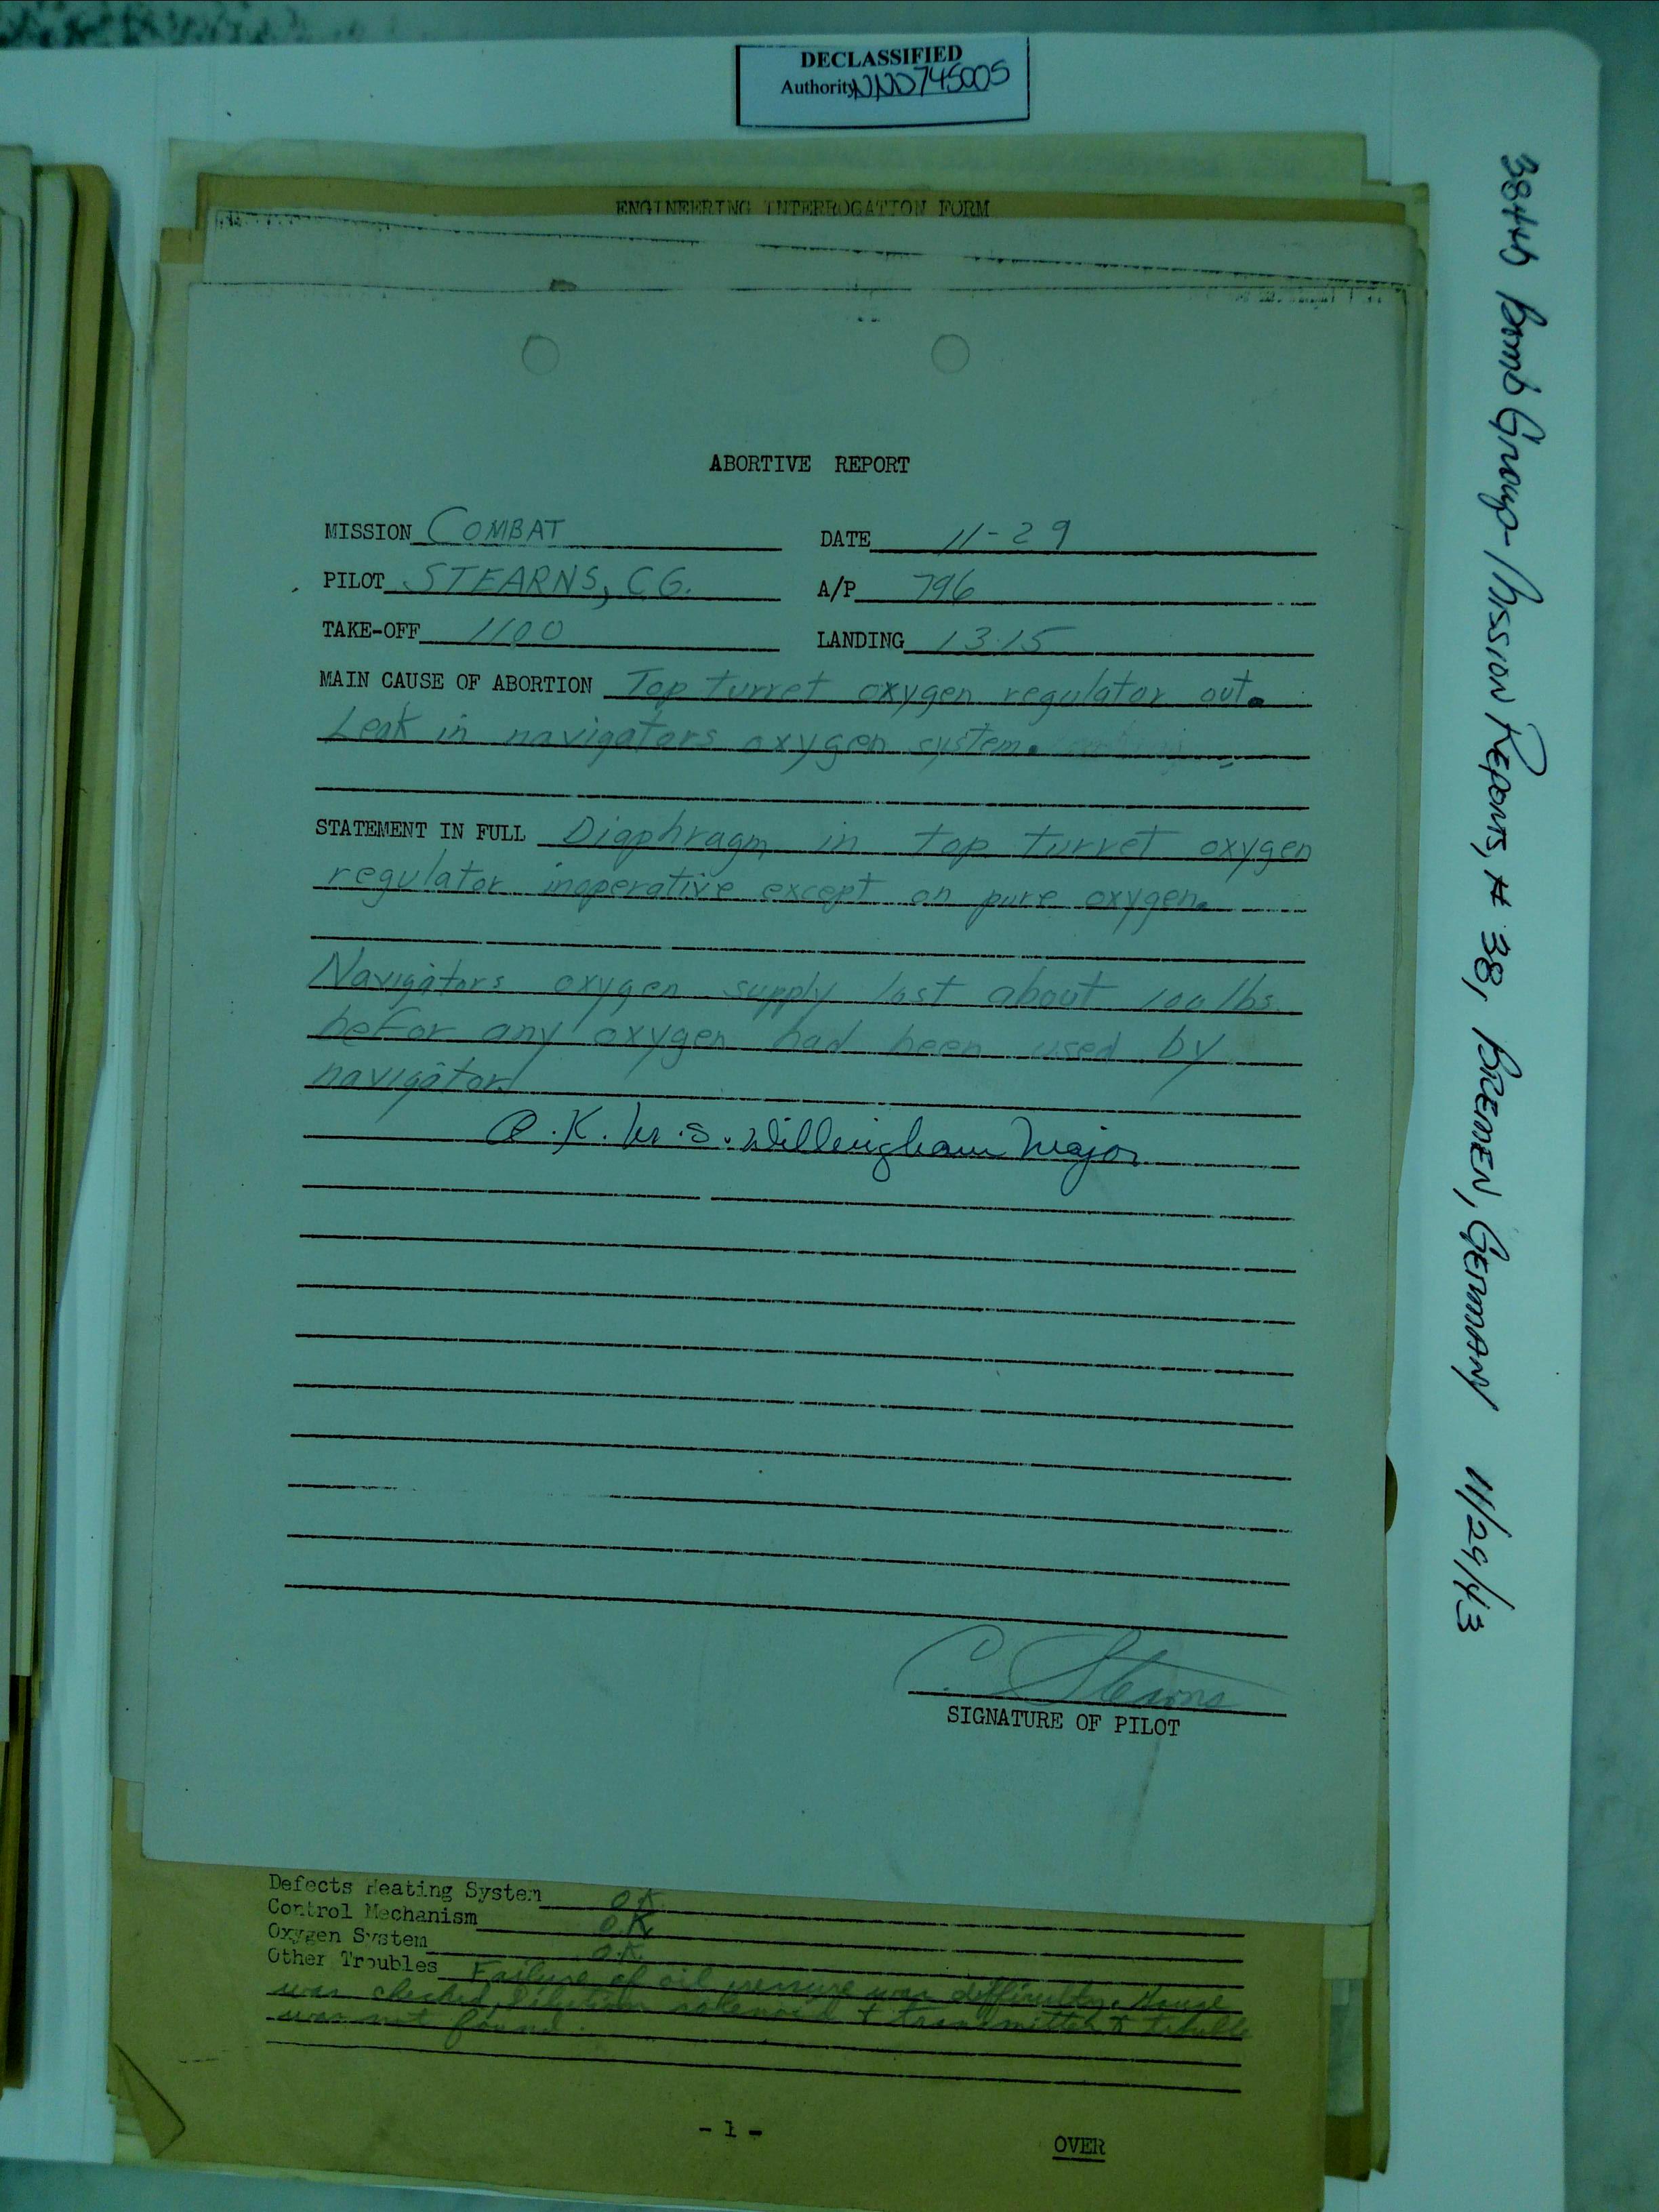 DECLASSIFIED
Authority NND 745005
384th Bomb Group - Mission Reports, # 38, BREMEN, GERMANY 11/29/43
ENGINEERING INTERROGATION FORM
ABORTIVE REPORT
MISSION COMBAT DATE 11-29
PILOT STEARNS, C.G. A/P 796
TAKE-OFF 1100 LANDING 1315
MAIN CAUSE OF ABORTION Top turret oxygen regulator out.
Leak in navigators oxygen system.
STATEMENT IN FULL Diaphragm in top turret oxygen
regulator inoperative except on pure oxygen.
Navigators oxygen supply lost about 100 lbs.
befor any oxygen had been used by
navigator
O.K. W.S. Willingham Major
C. Stearns
SIGNATURE OF PILOT
Defects Heating System O.K.
Control Mechanism O.K.
Oxygen System O.K.
Other Troubles Failure of oil pressure was difficulty.
was checked, solenoid & transmitter & trouble
was not found.
- 1 -
OVER